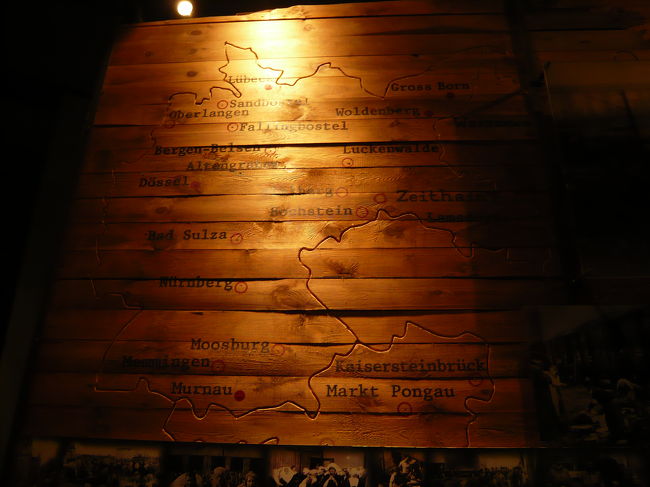 Lübeck
Gross Born
Sandbostel
Oberlangen
Woldenberg
Fallingbostel
Bergen-Belsen
Luckenwalde
Altengrabow
Dössel
Zeithain
Hochstein
Bad Sulza
Nürnberg
Moosburg
Memmingen
Kaisersteinbrück
Murnau
Markt Pongau